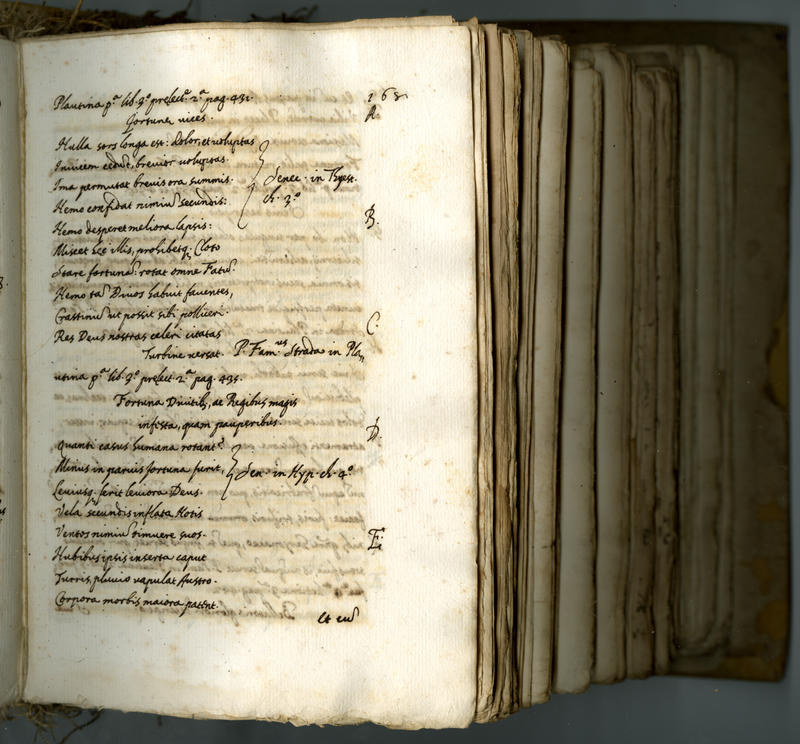 Plautina pª lib. 3º prelect. 2ª pag. 431. 168.
Fortunæ vices. A
Nulla sors longa est: dolor, et voluptas
Inuicem cedũt, breuior voluptas.
Ima permutat breuis ora summis. Senec. in Thyest.
Nemo confidat nimiũ secundis: ch. 3º
Nemo desperet meliora lapsis: B.
Miscet hæc illis, prohibetq; Cloto
Stare fortunã: rotat omne Fatũ.
Nemo tã Diuos habuit fauentes,
Crastinũ ut possit sibi polliceri.
Res Deus nostras celeri citatas C.
Turbine versat. P. Fam.us Strada in Pla
utina pª lib. 3º prelect. 2ª pag. 431.
Fortuna Diuitib, ac Regibus magis
infesta, quam pauperibus. D.
Quanti casus humana rotant?
Minus in paruis fortuna furit, Sen. in Hyp. ch. 4º
Leuiusq; ferit leuiora Deus.
Vela secundis inflata Notis
Ventos nimiũ timuere suos. E.
Nubibus ipsis inserta caput
Turris, pluuio vapulat Austro.
Corpora morbis maiora patent.
Et cũ